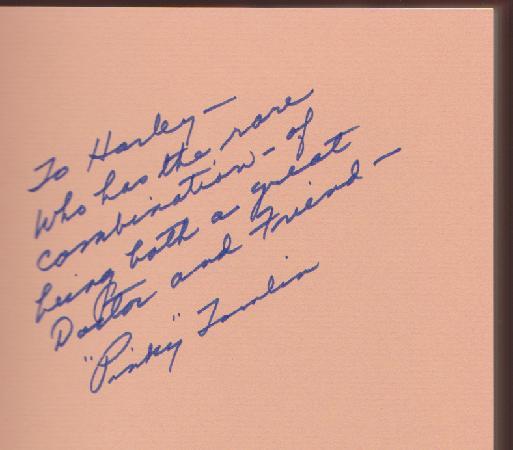 To Harley –
Who has the rare
combination – of
being both a great
Doctor and Friend –
"Pinky" Tomlin